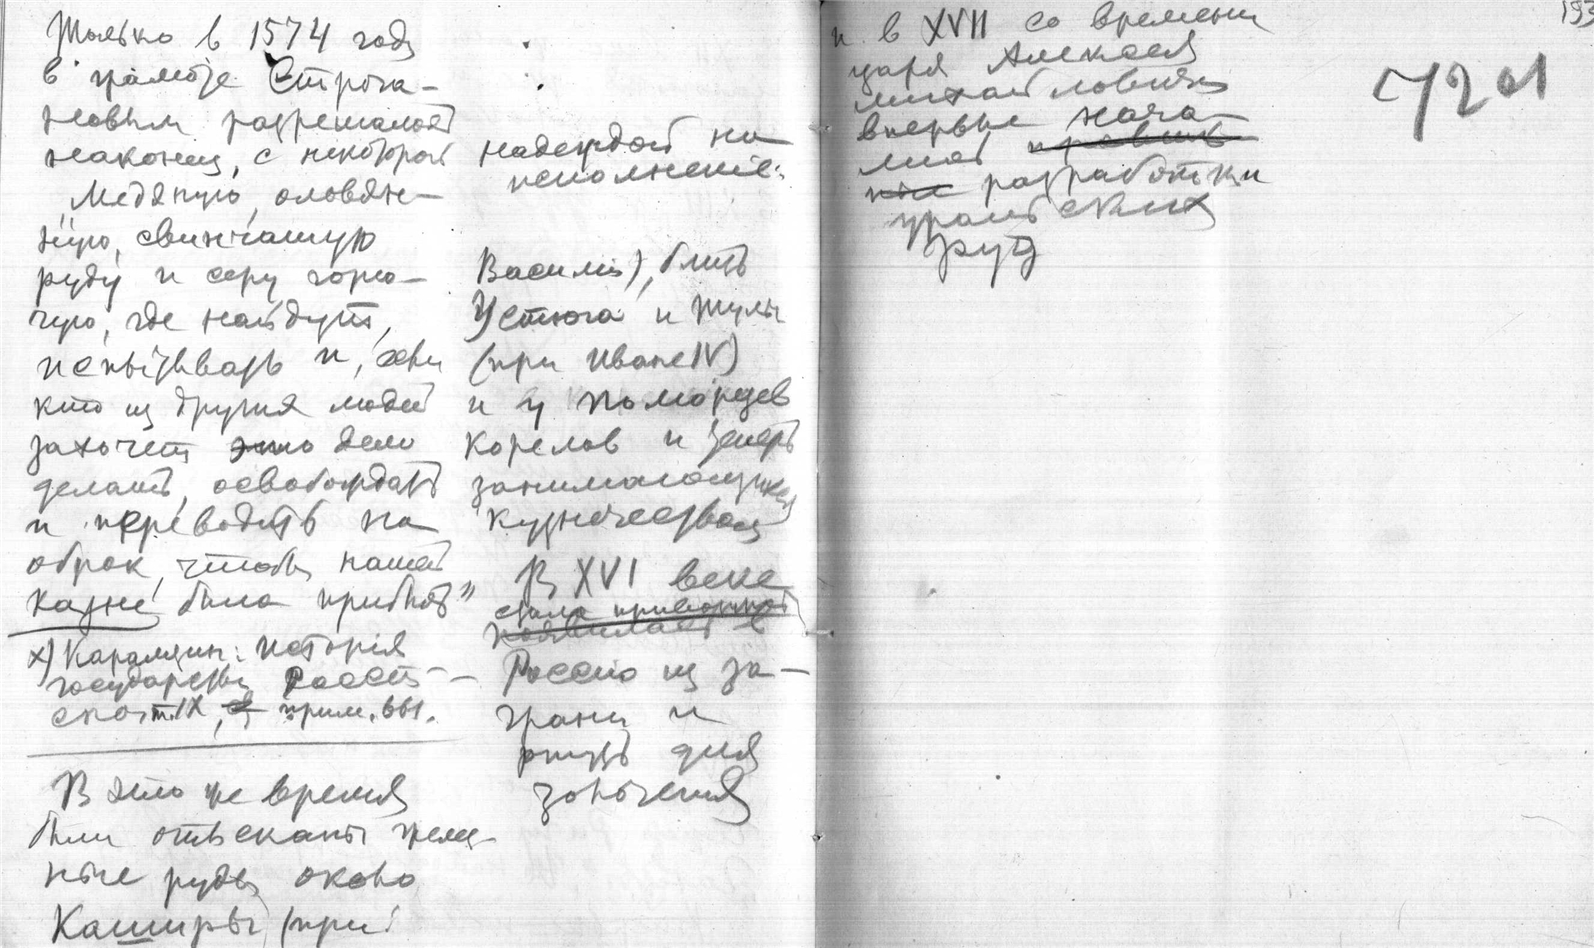 Только в 1574 году
в грамоте Строга-
новым разрешалось
наконец, с некоторой
„Медяную, оловян-
ную, свинчатую
руду и серу горю-
чую, где найдут,
испытывать и, если
кто из других людей
захочет это дело
делать, освобождать
и переводить на
оброк, чтобы нашей
казне была прибыль"
х) Карамзин: Исторія
государства Россій-
скаго т. IX, прим. 661.
В это же время
были отысканы желез-
ные руды около
Каширы (при
надеждой на
исполненіе:
Василіи), близ
Устюга и Тулы
(при Иване IV)
и у поморцев
корелов и теперь
занимающихся
кузнечеством
В XVI веке
стала привозной
появилась в
Россию из за-
границ и
ртуть для
золочения
и в XVII со времени
царя Алексея
Михайловича
впервые нача-
лись
разработки
уральских
руд
193
7201